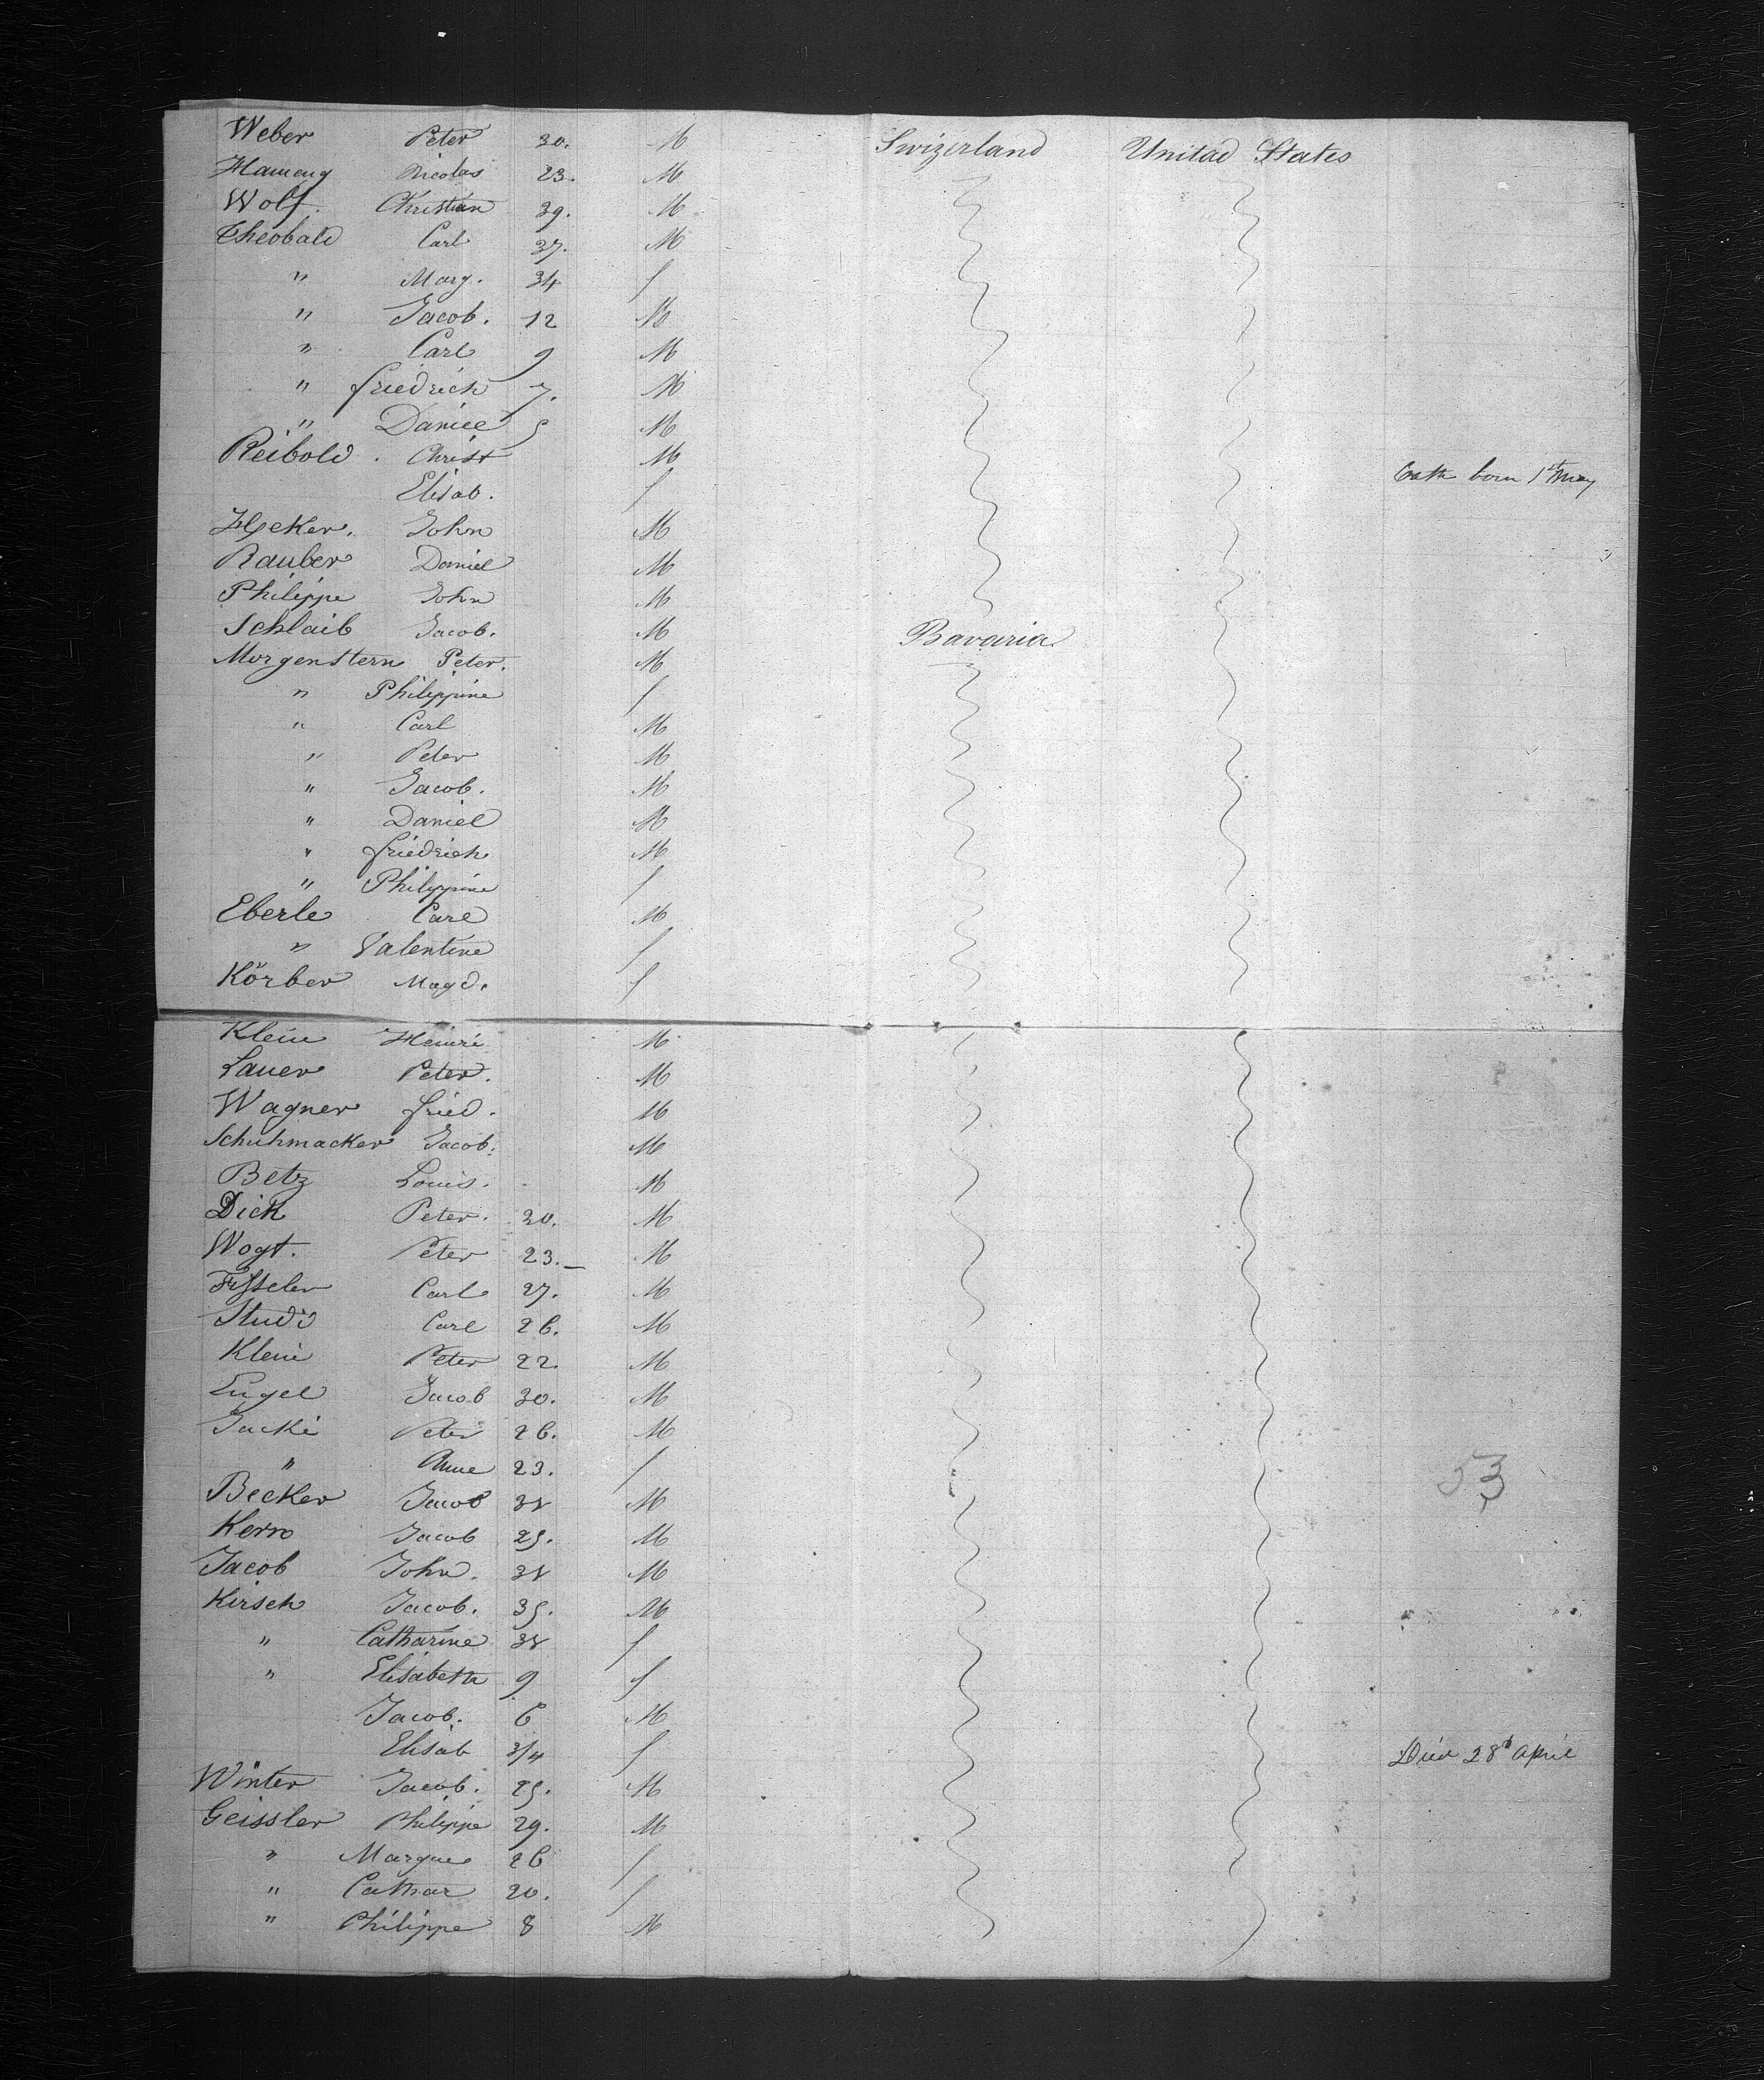 Weber Peter 30. M Swizerland Unitad States
Hameng Nicolas 23. M
Wolf. Christian 39. M
Theobald Carl 37. M
" Marg. 34 f
" Jacob. 12 M
" Carl 9 M
" friedrich 7. M
" Daniel 5 M
Reibold . Christ M
Elisab. f born 1st May
John M
Rauber Daniel M
Philippe John M
Schlaib Jacob. M Bavaria
Morgenstern Peter. M
" Philippine f
" Carl M
" Peter M
" Jacob. M
" Daniel M
" friedrich M
" Philippine f
Eberle Carl M
" Valentine f
Körber Magd. f
Klein Heinri M
Lauer Peter. M
Wagner fried. M
Schuhmacker Jacob. M
Betz Louis. M
Dick Peter. 20. M
Wogt. Peter 23. M
Carl 27. M
Studi Carl 26. M
Klein Peter 22. M
Engel Jacob 30. M
Jacki Peter 26. M
" Anne 23. f
53
Becker Jacob 38 M
Kern Jacob 25. M
Jacob John. 38 M
Kirsch Jacob. 35. M
" Catharine 38 f
" Elisabeth 9 f
Jacob. 6 M
Elisab 3/4 f Died 28th April
Winter Jacob. 25. M
Geissler Philippe 29. M
" Margue 26 f
" Cathar 20. f
" Philippe 8 M